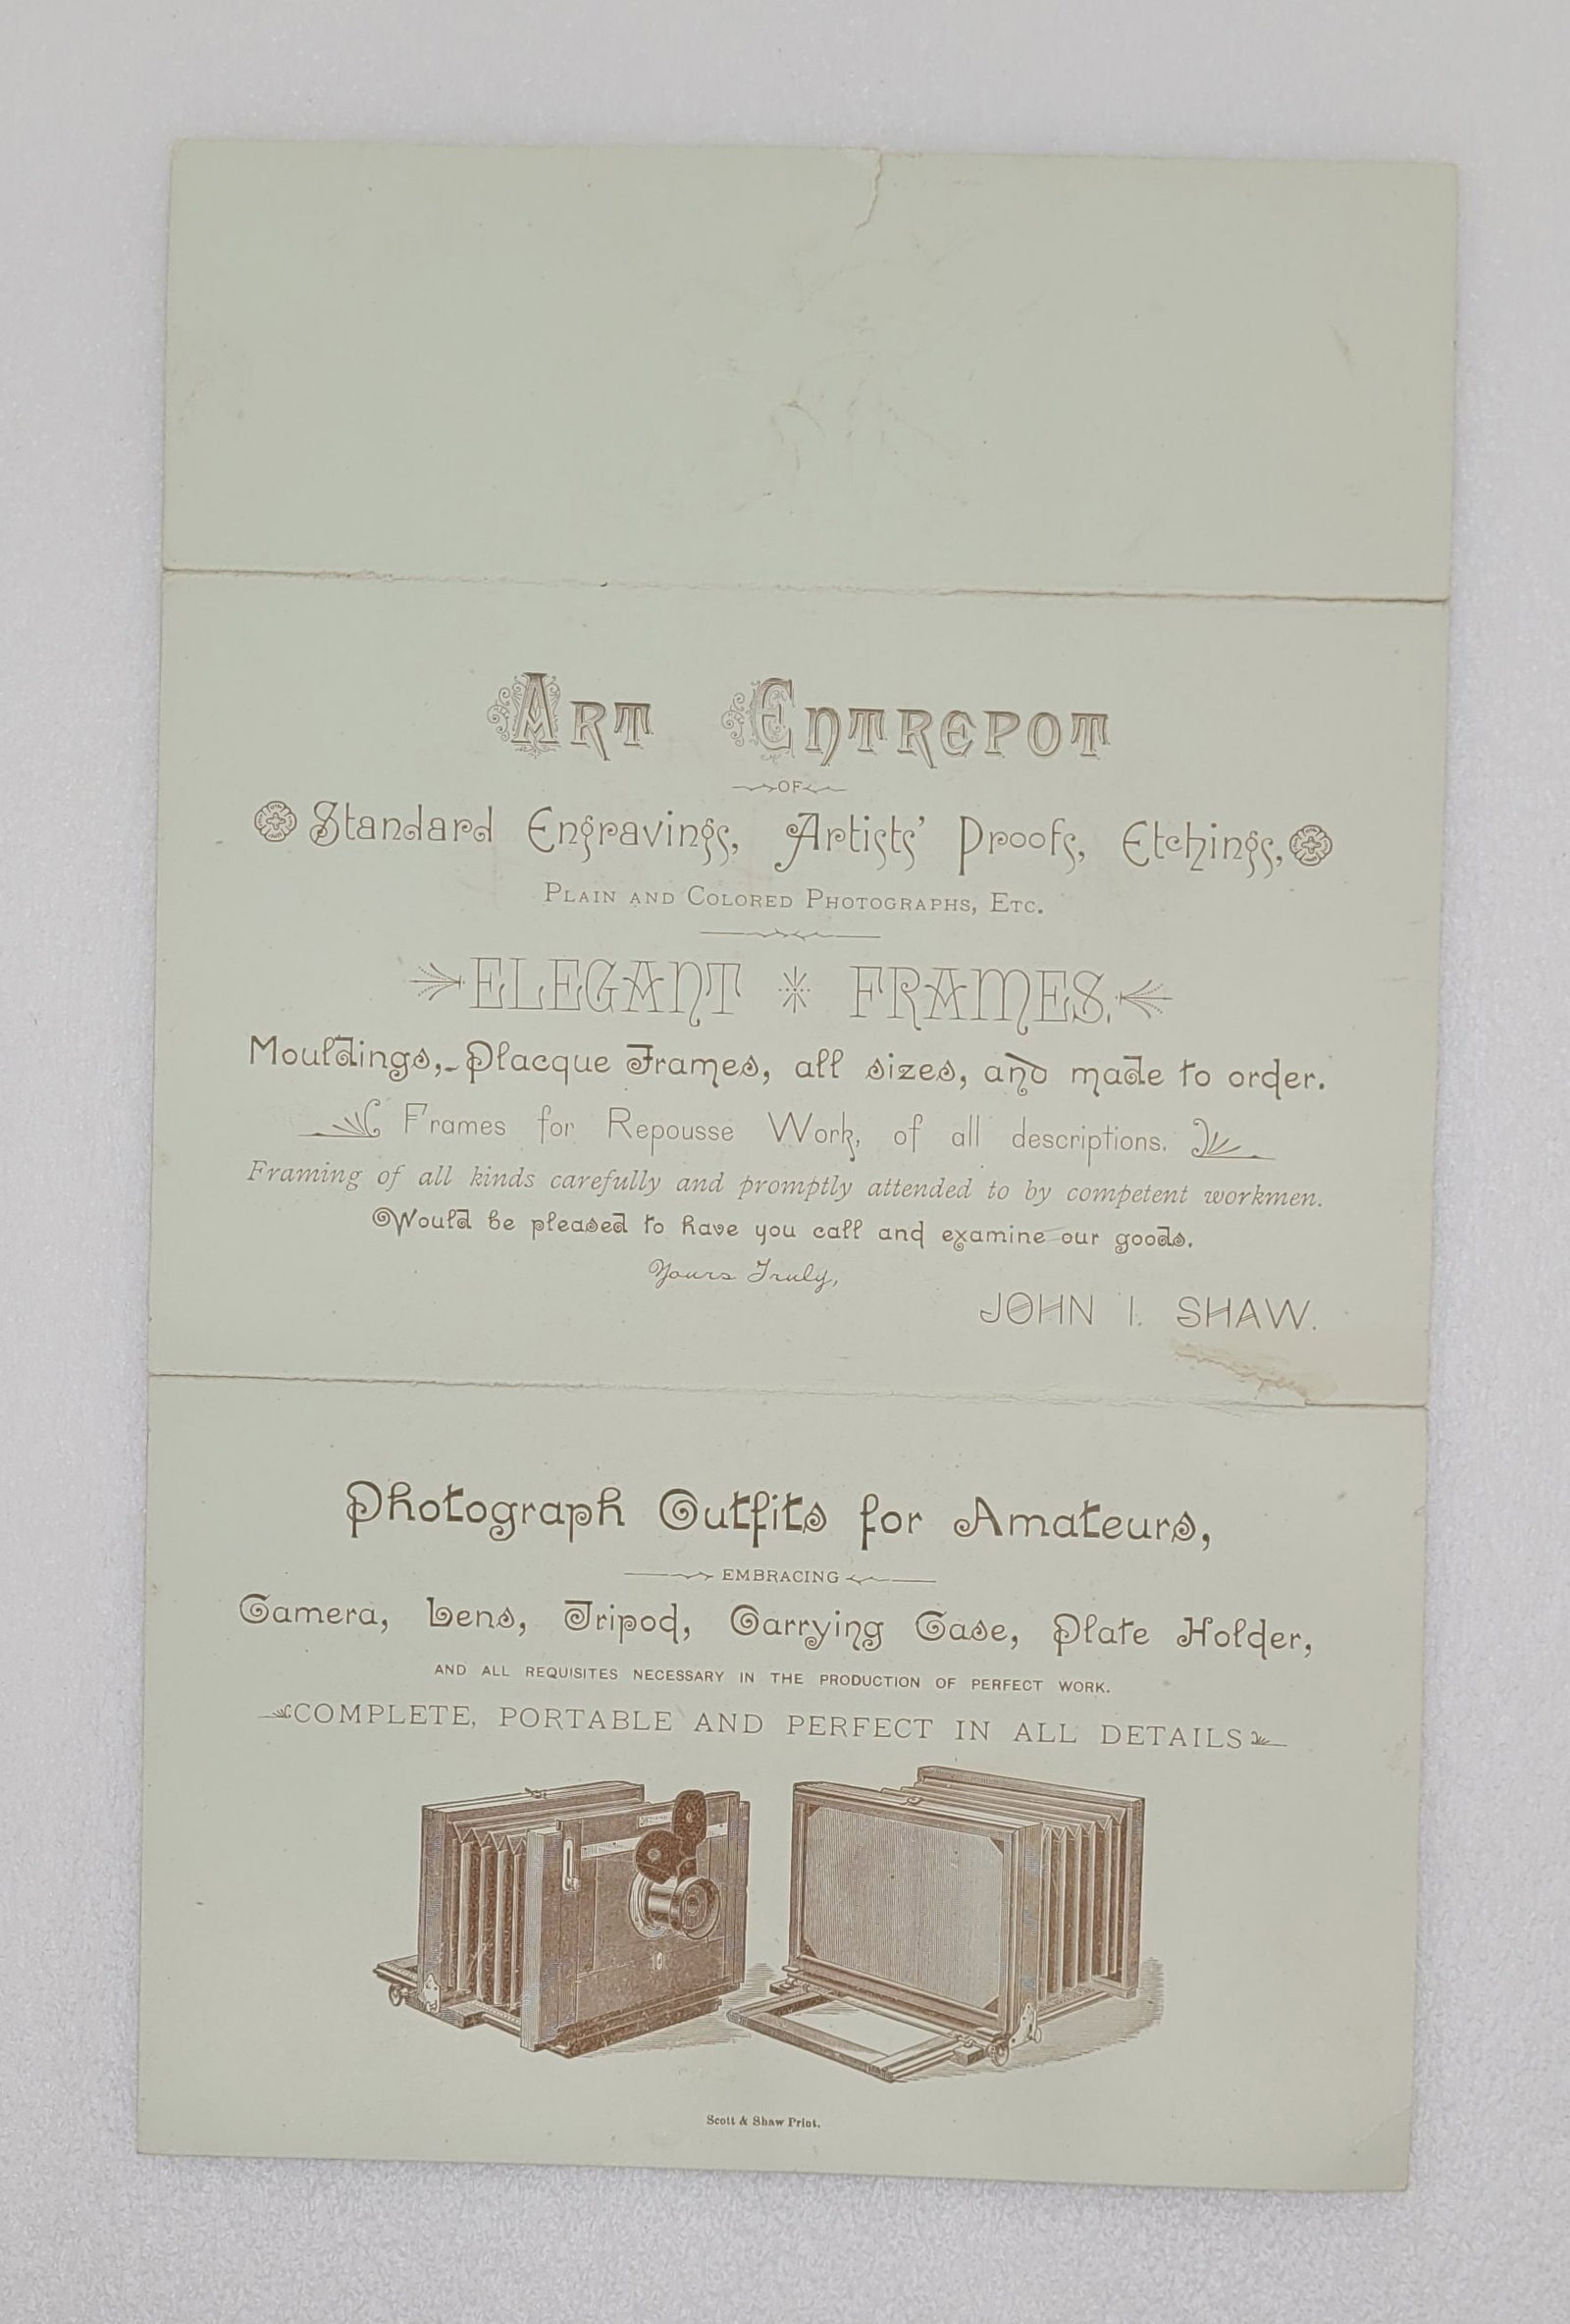 Art Entrepot
OF
Standard Engravings, Artists' Proofs, Etchings,
Plain and Colored Photographs, Etc.
ELEGANT FRAMES.
Mouldings, Placque Frames, all sizes, and made to order.
Frames for Repousse Work, of all descriptions.
Framing of all kinds carefully and promptly attended to by competent workmen.
Would be pleased to have you call and examine our goods.
Yours Truly,
JOHN I. SHAW.
Photograph Outfits for Amateurs,
EMBRACING
Camera, Lens, Tripod, Carrying Case, Plate Holder,
AND ALL REQUISITES NECESSARY IN THE PRODUCTION OF PERFECT WORK.
COMPLETE, PORTABLE AND PERFECT IN ALL DETAILS
Scott & Shaw Print.